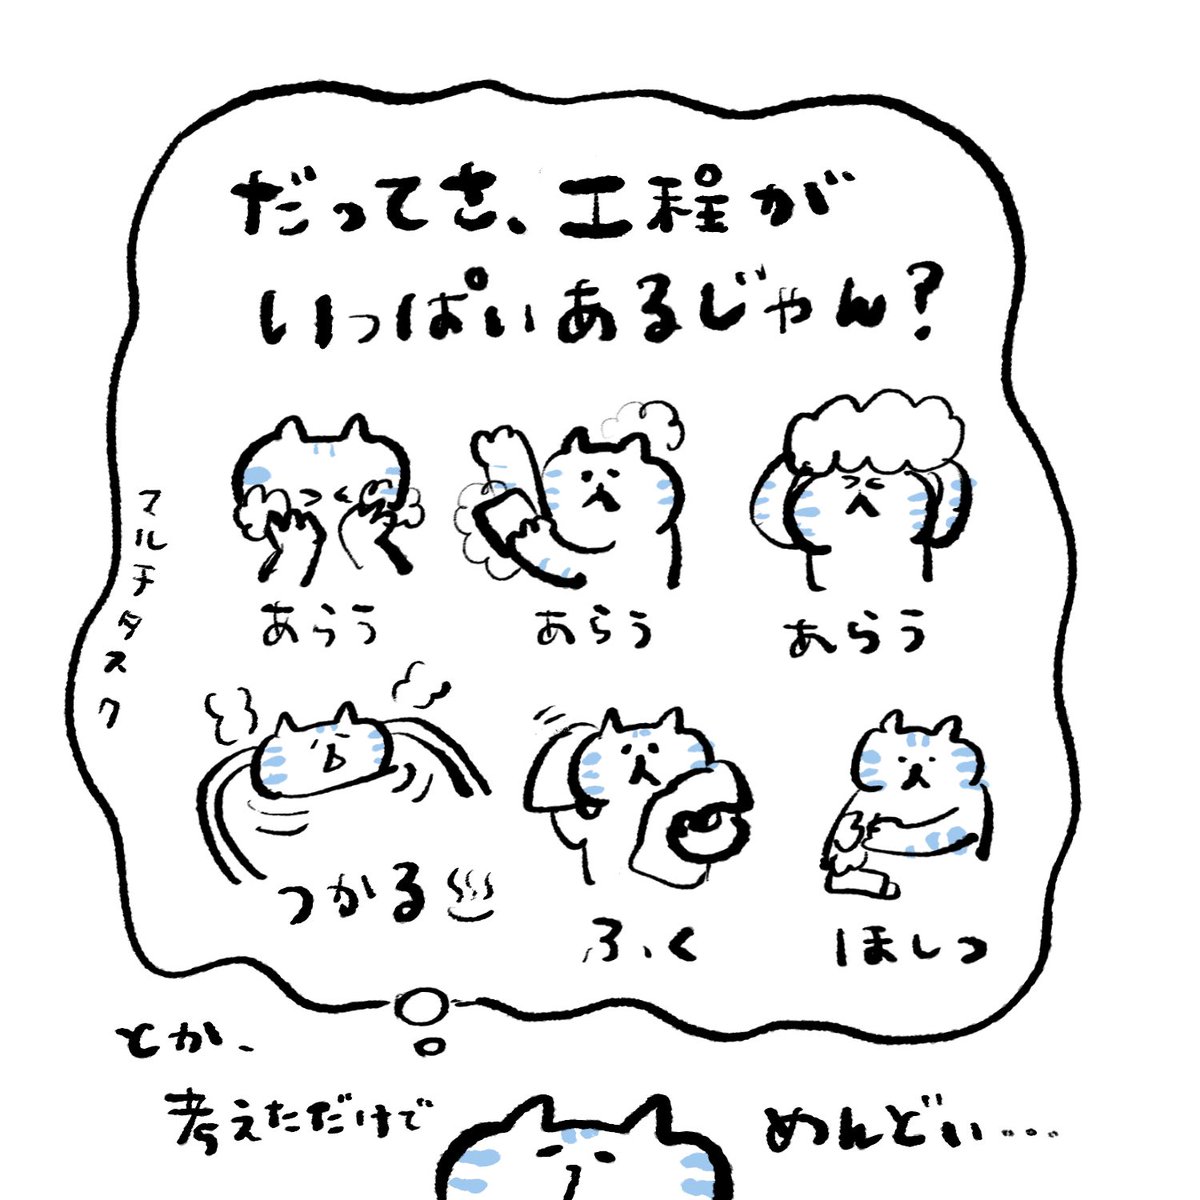 だってさ、工程が
いっぱいあるじゃん?
マルチタスク
あらう
あらう
あらう
つかる♨
ふく
ほしつ
とか、
考えただけで
めんどい…